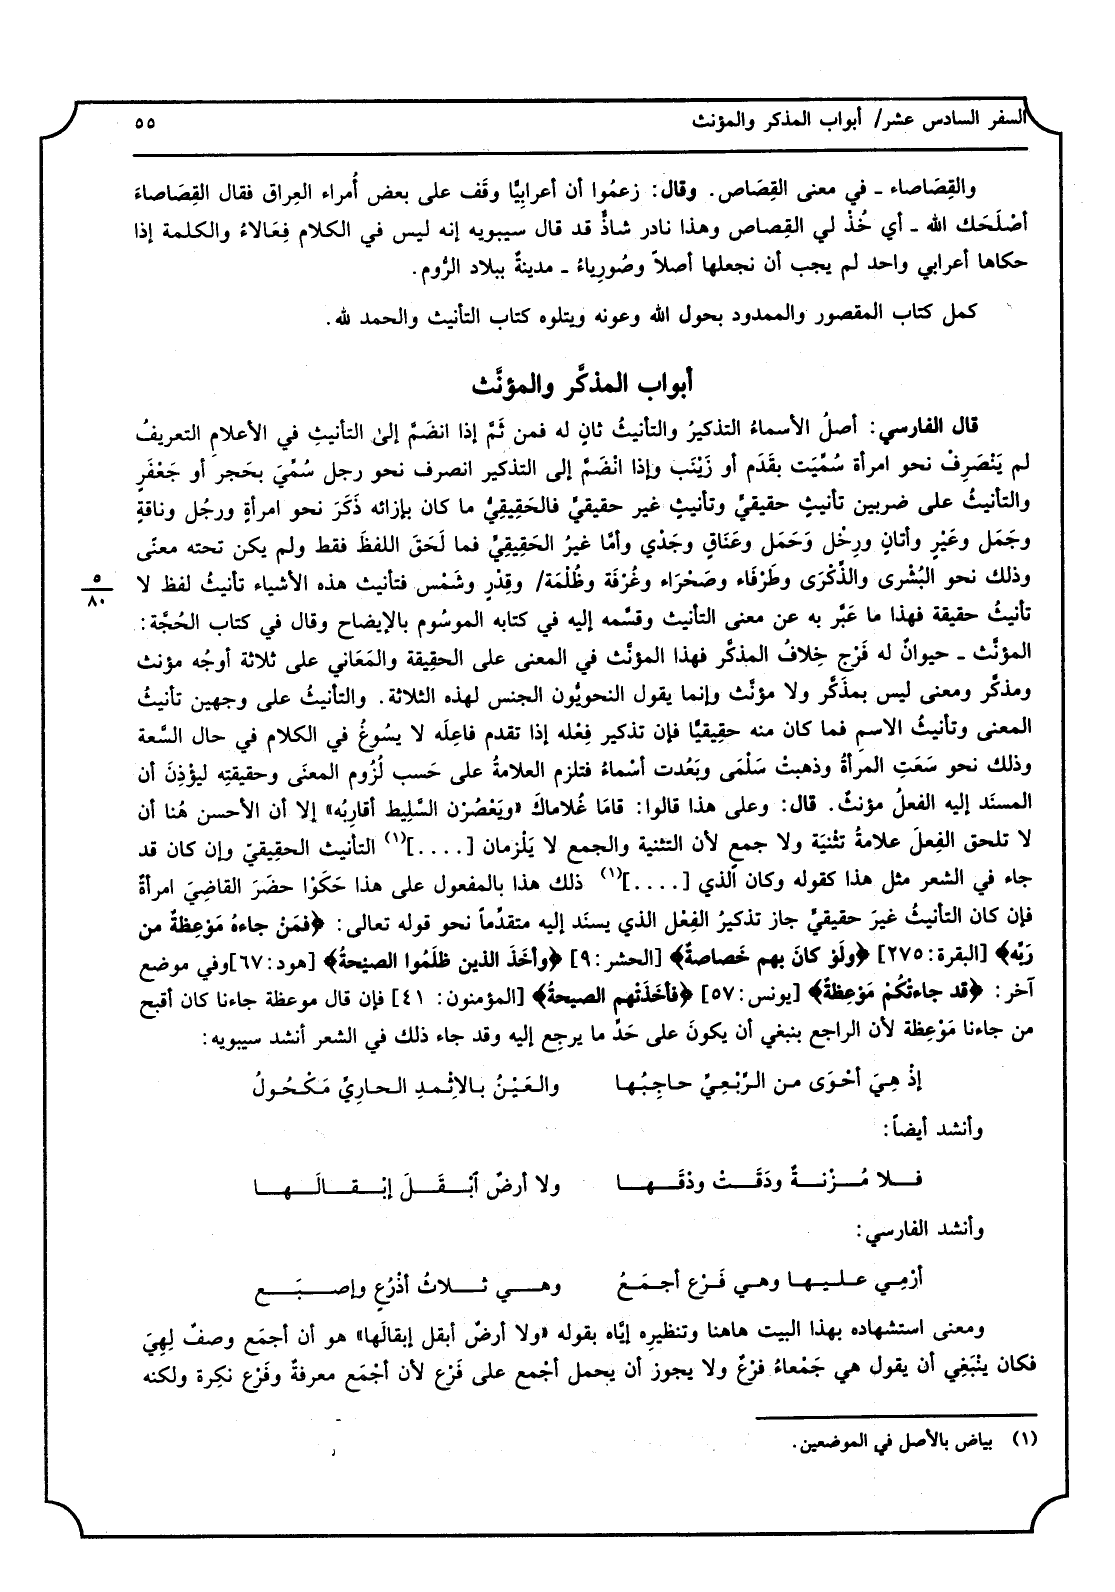 السفر السادس عشر/ أبواب المذكر والمؤنث ٥٥
والقِصَاصاء ـ في معنى القِصَاص. وقال: زعمُوا أن أعرابِيًّا وقَف على بعض أُمراء العِراق فقال القِصَاصاءَ
أصْلَحَك الله ـ أي خُذْ لي القِصاص وهذا نادر شاذٌّ قد قال سيبويه إنه ليس في الكلام فِعَالاءُ والكلمة إذا
حكاها أعرابي واحد لم يجب أن نجعلها أصلاً وصُورِياءُ ـ مدينةٌ ببلاد الرُّوم.
كمل كتاب المقصور والممدود بحول الله وعونه ويتلوه كتاب التأنيث والحمد لله.
أبواب المذكَّر والمؤنَّث
قال الفارسي: أصلُ الأسماءُ التذكيرُ والتأنيثُ ثانٍ له فمن ثَمَّ إذا انضَمَّ إلىٰ التأنيثِ في الأعلامِ التعريفُ
لم يَنْصَرِفْ نحو امرأة سُمِّيَت بقَدَم أو زَيْنَب وإذا انْضَمَّ إلى التذكير انصرف نحو رجل سُمِّيَ بحَجر أو جَعْفَرٍ
والتأنيثُ على ضربين تأنيثٍ حقيقيٍّ وتأنيثٍ غير حقيقيٍّ فالحَقِيقِيُّ ما كان بإزائه ذَكَرَ نحو امرأةٍ ورجُل وناقةٍ
وجَمَل وعَيْرٍ وأتانٍ ورِخْل وَحَمَل وعنَاقٍ وجَدْي وأمَّا غيرُ الحَقِيقِيِّ فما لَحَقَ اللفظَ فقط ولم يكن تحته معنًى
وذلك نحو البُشْرى والذِّكْرَى وطَرْفَاء وصَحْرَاء وغُرْفَة وظُلْمَة/ وقِدْرٍ وشَمْس فتأنيث هذه الأشياء تأنيثُ لفظ لا
٥
٨٠
تأنيثُ حقيقة فهذا ما عَبَّر به عن معنى التأنيث وقسَّمه إليه في كتابه الموسُوم بالإيضاح وقال في كتاب الحُجَّة:
المؤنَّث ـ حيوانٌ له فَرْج خِلافُ المذكَّر فهذا المؤنَّث في المعنى على الحقِيقة والمَعَاني على ثلاثة أوجُه مؤنث
ومذكَّر ومعنى ليس بمذَكَّر ولا مؤنَّث وإنما يقول النحويُّون الجنس لهذه الثلاثة. والتأنيثُ على وجهين تأنيثُ
المعنى وتأنيثُ الاسمِ فما كان منه حقِيقيًّا فإن تذكير فِعْله إذا تقدم فاعِلَه لا يسُوغُ في الكلام في حال السَّعة
وذلك نحو سَعَتِ المَرأةُ وذهبتْ سَلْمَى وبَعُدت أسْماءُ فتلزم العلامةُ على حَسب لُزُوم المعنَى وحقيقتِه ليؤْذِنَ أن
المسنَد إليه الفعلُ مؤنثٌ. قال: وعلى هذا قالوا: قامَا غُلاماكَ «ويَعْصُرْن السَّلِيط أقارِبُه» إلا أن الأحسن هُنا أن
لا تلحق الفِعلَ علامةُ تثْنيَة ولا جمعٍ لأن التثنية والجمع لا يَلْزمان [. . . .](١) التأنيث الحقيقيّ وإن كان قد
جاء في الشعر مثل هذا كقوله وكان الذي [. . . .](١) ذلك هذا بالمفعول على هذا حَكَوْا حضَرَ القاضِيَ امرأةٌ
فإن كان التأنيثُ غيرَ حقيقيٍّ جاز تذكيرُ الفِعْل الذي يسنَد إليه متقدِّماً نحو قوله تعالى: ﴿فمَنْ جاءهُ مَوْعِظةٌ من
رَبِّه﴾ [البقرة: ٢٧٥] ﴿ولَوْ كانَ بهم خَصاصةٌ﴾ [الحشر: ٩] ﴿وأخَذَ الذين ظلَمُوا الصيْحةُ﴾ [هود: ٦٧]وفي موضع
آخر: ﴿قد جاءتْكُمْ مَوْعِظةٌ﴾ [يونس: ٥٧] ﴿فأخَذَتْهم الصيحةُ﴾ [المؤمنون: ٤١] فإن قال موعظة جاءنا كان أقبح
من جاءنا مَوْعِظة لأن الراجع بنبغي أن يكونَ على حَدِّ ما يرجِع إليه وقد جاء ذلك في الشعر أنشد سيبويه:
إذْ هِيَ أحْوَى من الرِّبْعِيِّ حاجِبُها والعَيْنُ بالإِثْمدِ الحارِيِّ مَكْحُولُ
وأنشد أيضاً:
فلا مُزْنةٌ ودَقَتْ ودْقَها ولا أرضٌ ٱبْقَلَ إبْقالَها
وأنشد الفارسي:
أرْمِي عليها وهي فَرْع أجمَعُ وهي ثلاثُ أذْرُعٍ وإصبَع
ومعنى استشهاده بهذا البيت هاهنا وتنظيرِه إيَّاه بقوله «ولا أرضٌ أبقل إبقالَها» هو أن أجمَع وصفٌ لِهِيَ
فكان ينْبَغِي أن يقول هي جَمْعاءُ فرْعٌ ولا يجوز أن يحمل أجْمع على فَرْع لأن أجْمَع معرفةٌ وفَرْع نكِرة ولكنه
(١) بياض بالأصل في الموضعين.